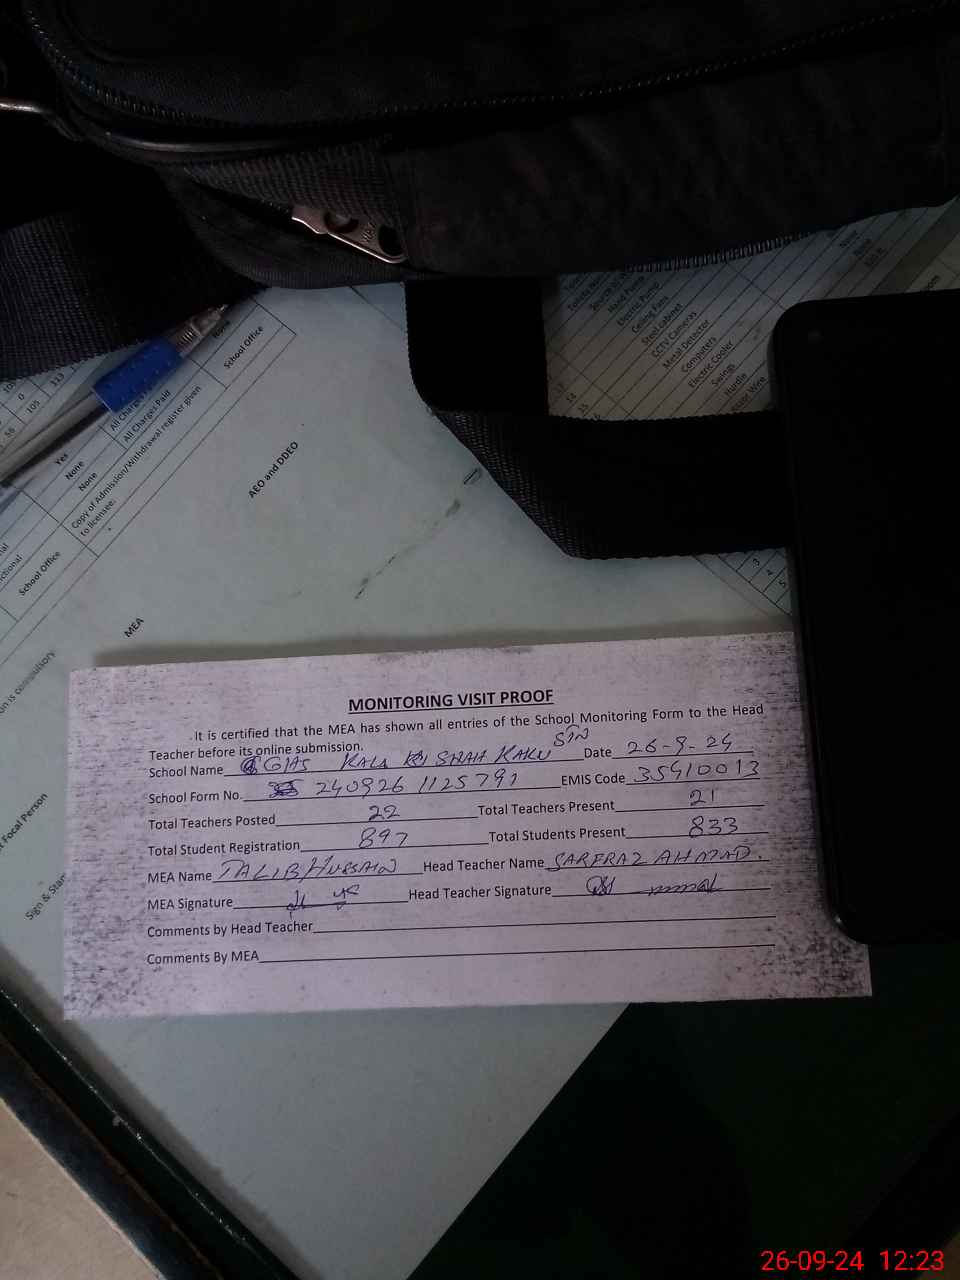 None
None
$50 ft
Toilets Nee
Hand Pump
Electric Pump
Ceiling Fans
Steel cabinet
CCTV Cameras
Metal Detector
Computers
Electric Cooler
Swings
Hurdle
Wire
17
15
3
4
5
0
105
113
56
None
School Office
All Charges
All Charges Paid
Yes
None
None
Copy of Admission/Withdrawal register given
to licensee.
AEO and DDEO
School Office
MEA
is compulsory
Focal Person
Sign & Stam
MONITORING VISIT PROOF
It is certified that the MEA has shown all entries of the School Monitoring Form to the Head
Teacher before its online submission.
School Name KALA SHAH KAKU Date 26-9-24
School Form No. 240926 1125791 EMIS Code 35410013
Total Teachers Posted 22 Total Teachers Present 21
Total Student Registration 897 Total Students Present 833
MEA Name TALIB HUSSAIN Head Teacher Name SARFRAZ AHMAD.
MEA Signature Head Teacher Signature
Comments by Head Teacher
Comments By MEA
26-09-24 12:23